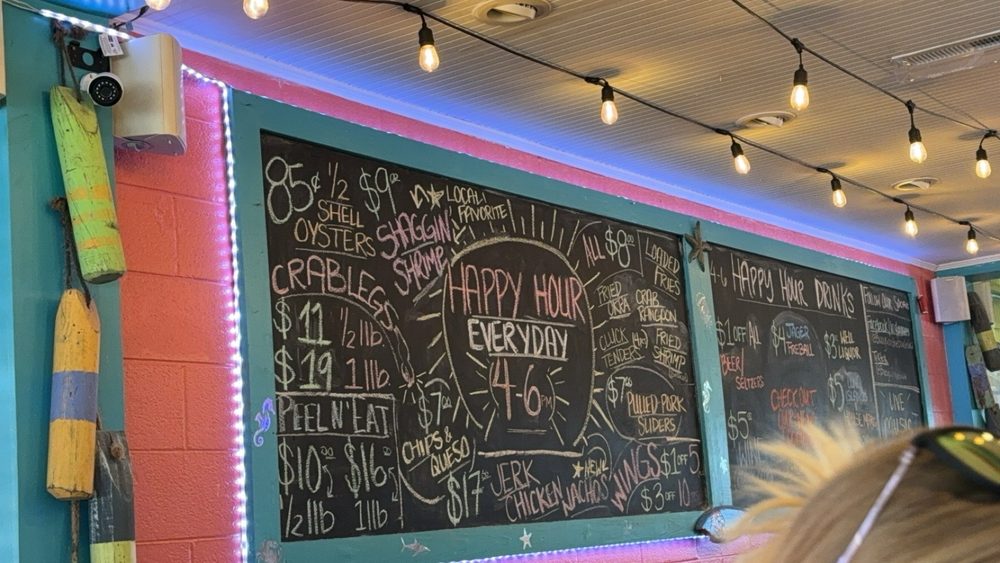 85¢ 1/2
SHELL
OYSTERS
$9
LOCAL
FAVORITE
SHAGGIN'
SHRIMP
CRABLEGS
$11 1/2 lb
$19 1 lb
PEEL N' EAT
$10 $16
1/2 lb 1 lb
HAPPY HOUR
EVERYDAY
4-6PM
$7
CHIPS &
QUESO
$17
JERK
CHICKEN NACHOS
ALL $8
LOADED
FRIES
FRIED
OKRA
CRAB
RANGOON
CLUCK
TENDERS
FRIED
SHRIMP
$7
PULLED PORK
SLIDERS
WINGS
$1 OFF 5
$3 OFF 10
4-6 HAPPY HOUR DRINKS
$1 OFF ALL
BEER/
SELTZERS
$4 JAGER
FIREBALL
$3 WELL
LIQUOR
$5
CHECK OUT
FOLLOW OUR SOCIALS
LIVE
MUSIC